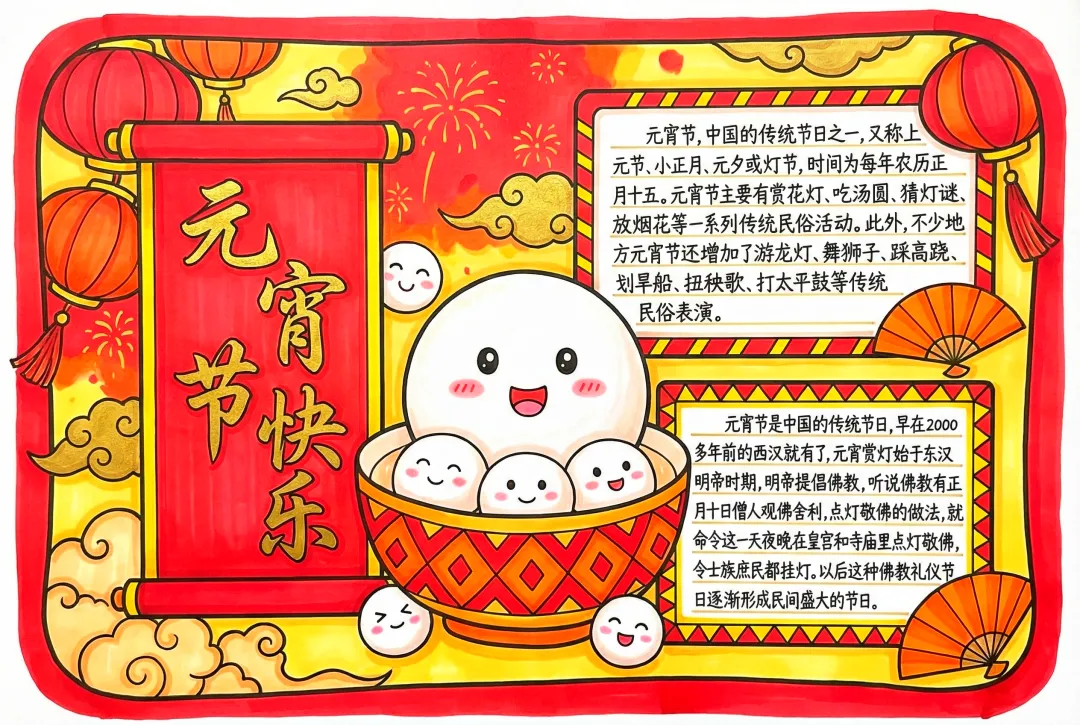 元
宵
节
快
乐
元宵节，中国的传统节日之一，又称上
元节、小正月、元夕或灯节，时间为每年农历正
月十五。元宵节主要有赏花灯、吃汤圆、猜灯谜、
放烟花等一系列传统民俗活动。此外，不少地
方元宵节还增加了游龙灯、舞狮子、踩高跷、
划旱船、扭秧歌、打太平鼓等传统
民俗表演。
元宵节是中国的传统节日，早在2000
多年前的西汉就有了，元宵赏灯始于东汉
明帝时期，明帝提倡佛教，听说佛教有正
月十日僧人观佛舍利，点灯敬佛的做法，就
命令这一天夜晚在皇宫和寺庙里点灯敬佛，
令士族庶民都挂灯。以后这种佛教礼仪节
日逐渐形成民间盛大的节日。